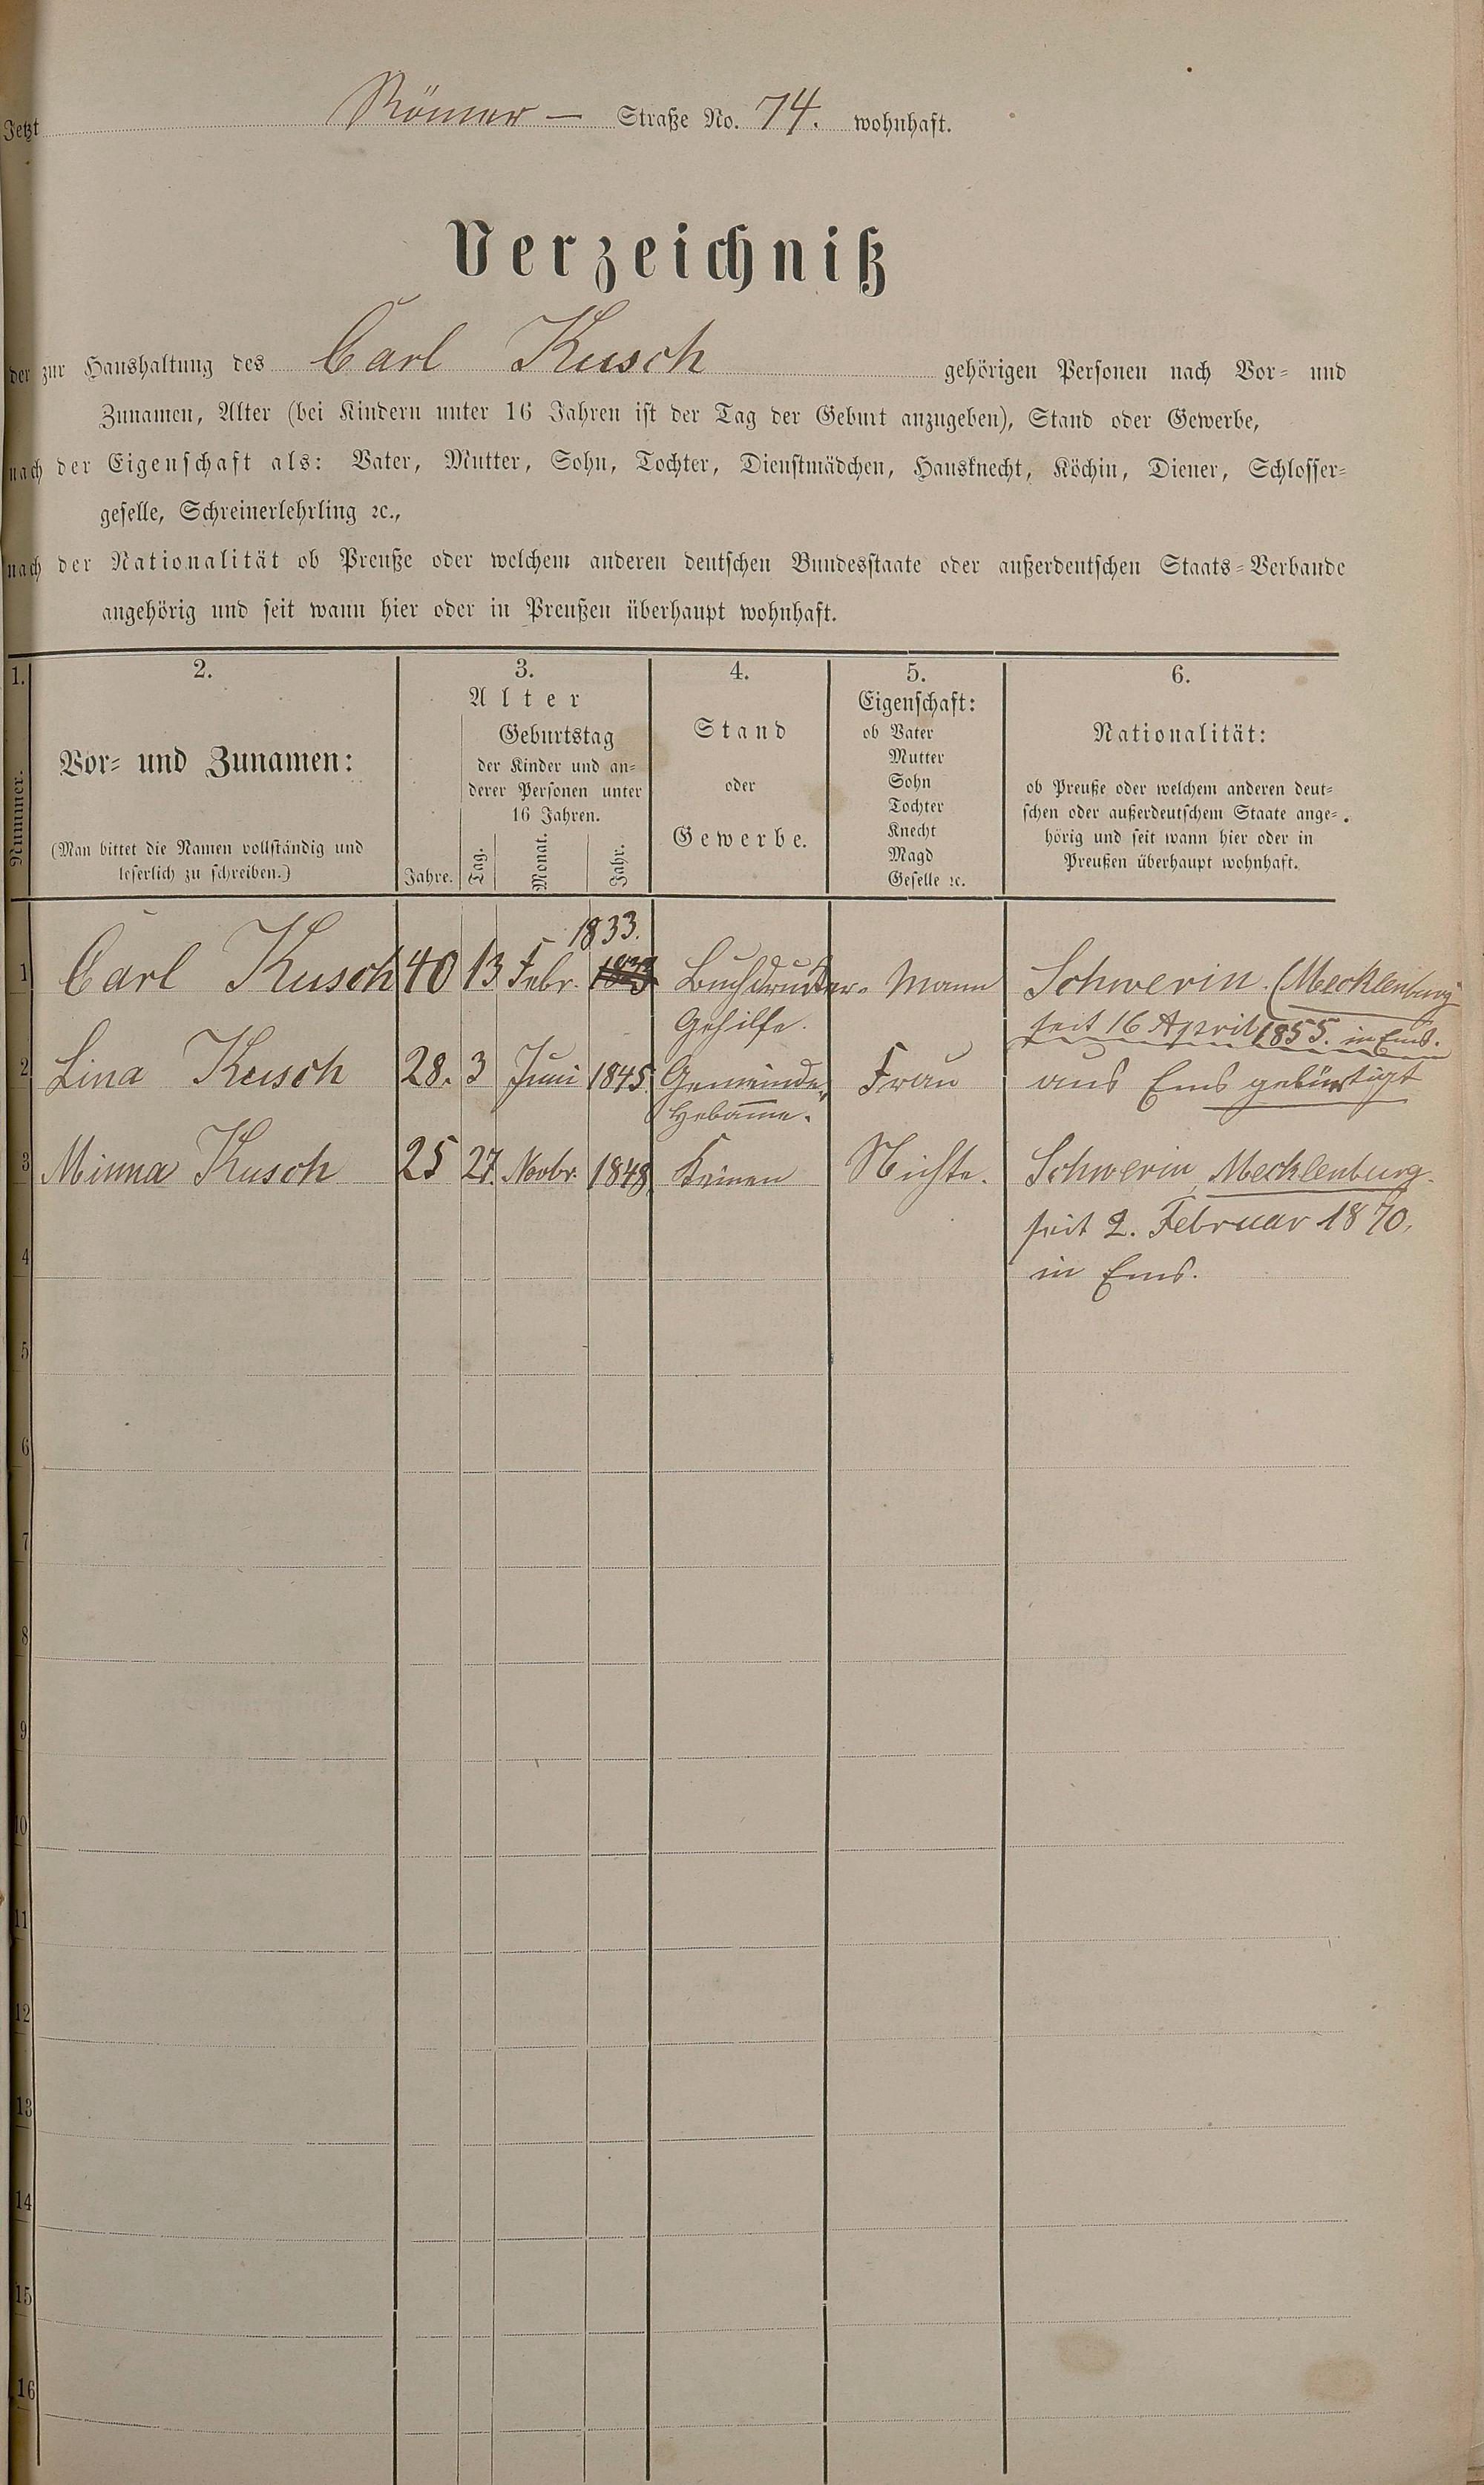 Jetzt Römer- Straße No. 74. wohnhaft.
Verzeichniß
der zur Haushaltung des Carl Kusch gehörigen Personen nach Vor- und
Zunamen, Alter (bei Kindern unter 16 Jahren ist der Tag der Geburt anzugeben), Stand oder Gewerbe,
nach der Eigenschaft als: Vater, Mutter, Sohn, Tochter, Dienstmädchen, Hausknecht, Köchin, Diener, Schlosser-
geselle, Schreinerlehrling ꝛc.,
nach der Nationalität ob Preuße oder welchem anderen deutschen Bundesstaate oder außerdeutschen Staats-Verbande
angehörig und seit wann hier oder in Preußen überhaupt wohnhaft.
1.
Nummer.
2.
Vor- und Zunamen:
(Man bittet die Namen vollständig und
leserlich zu schreiben.)
3.
Alter
Geburtstag
der Kinder und an-
derer Personen unter
16 Jahren.
Jahre. Tag. Monat. Jahr.
4.
Stand
oder
Gewerbe.
5.
Eigenschaft:
ob Vater
Mutter
Sohn
Tochter
Knecht
Magd
Geselle ꝛc.
6.
Nationalität:
ob Preuße oder welchem anderen deut-
schen oder außerdeutschem Staate ange-
hörig und seit wann hier oder in
Preußen überhaupt wohnhaft.
1833.
1 Carl Kusch 40 13 Febr. Buchdrucker- Mann Schwerin. (Mecklenburg
Gehilfe. seit 16 April 1855. in Ems.
2 Lina Kusch 28. 3 Juni 1845. Gemeinde- Frau aus Ems gebürtigt
Hebame.
3 Minna Kusch 25 27. Novbr. 1848. Keinen Nichte. Schwerin, Mecklenburg.
seit 2. Februar 1870.
4 in Ems.
5
6
7
8
9
10
11
12
13
14
15
16